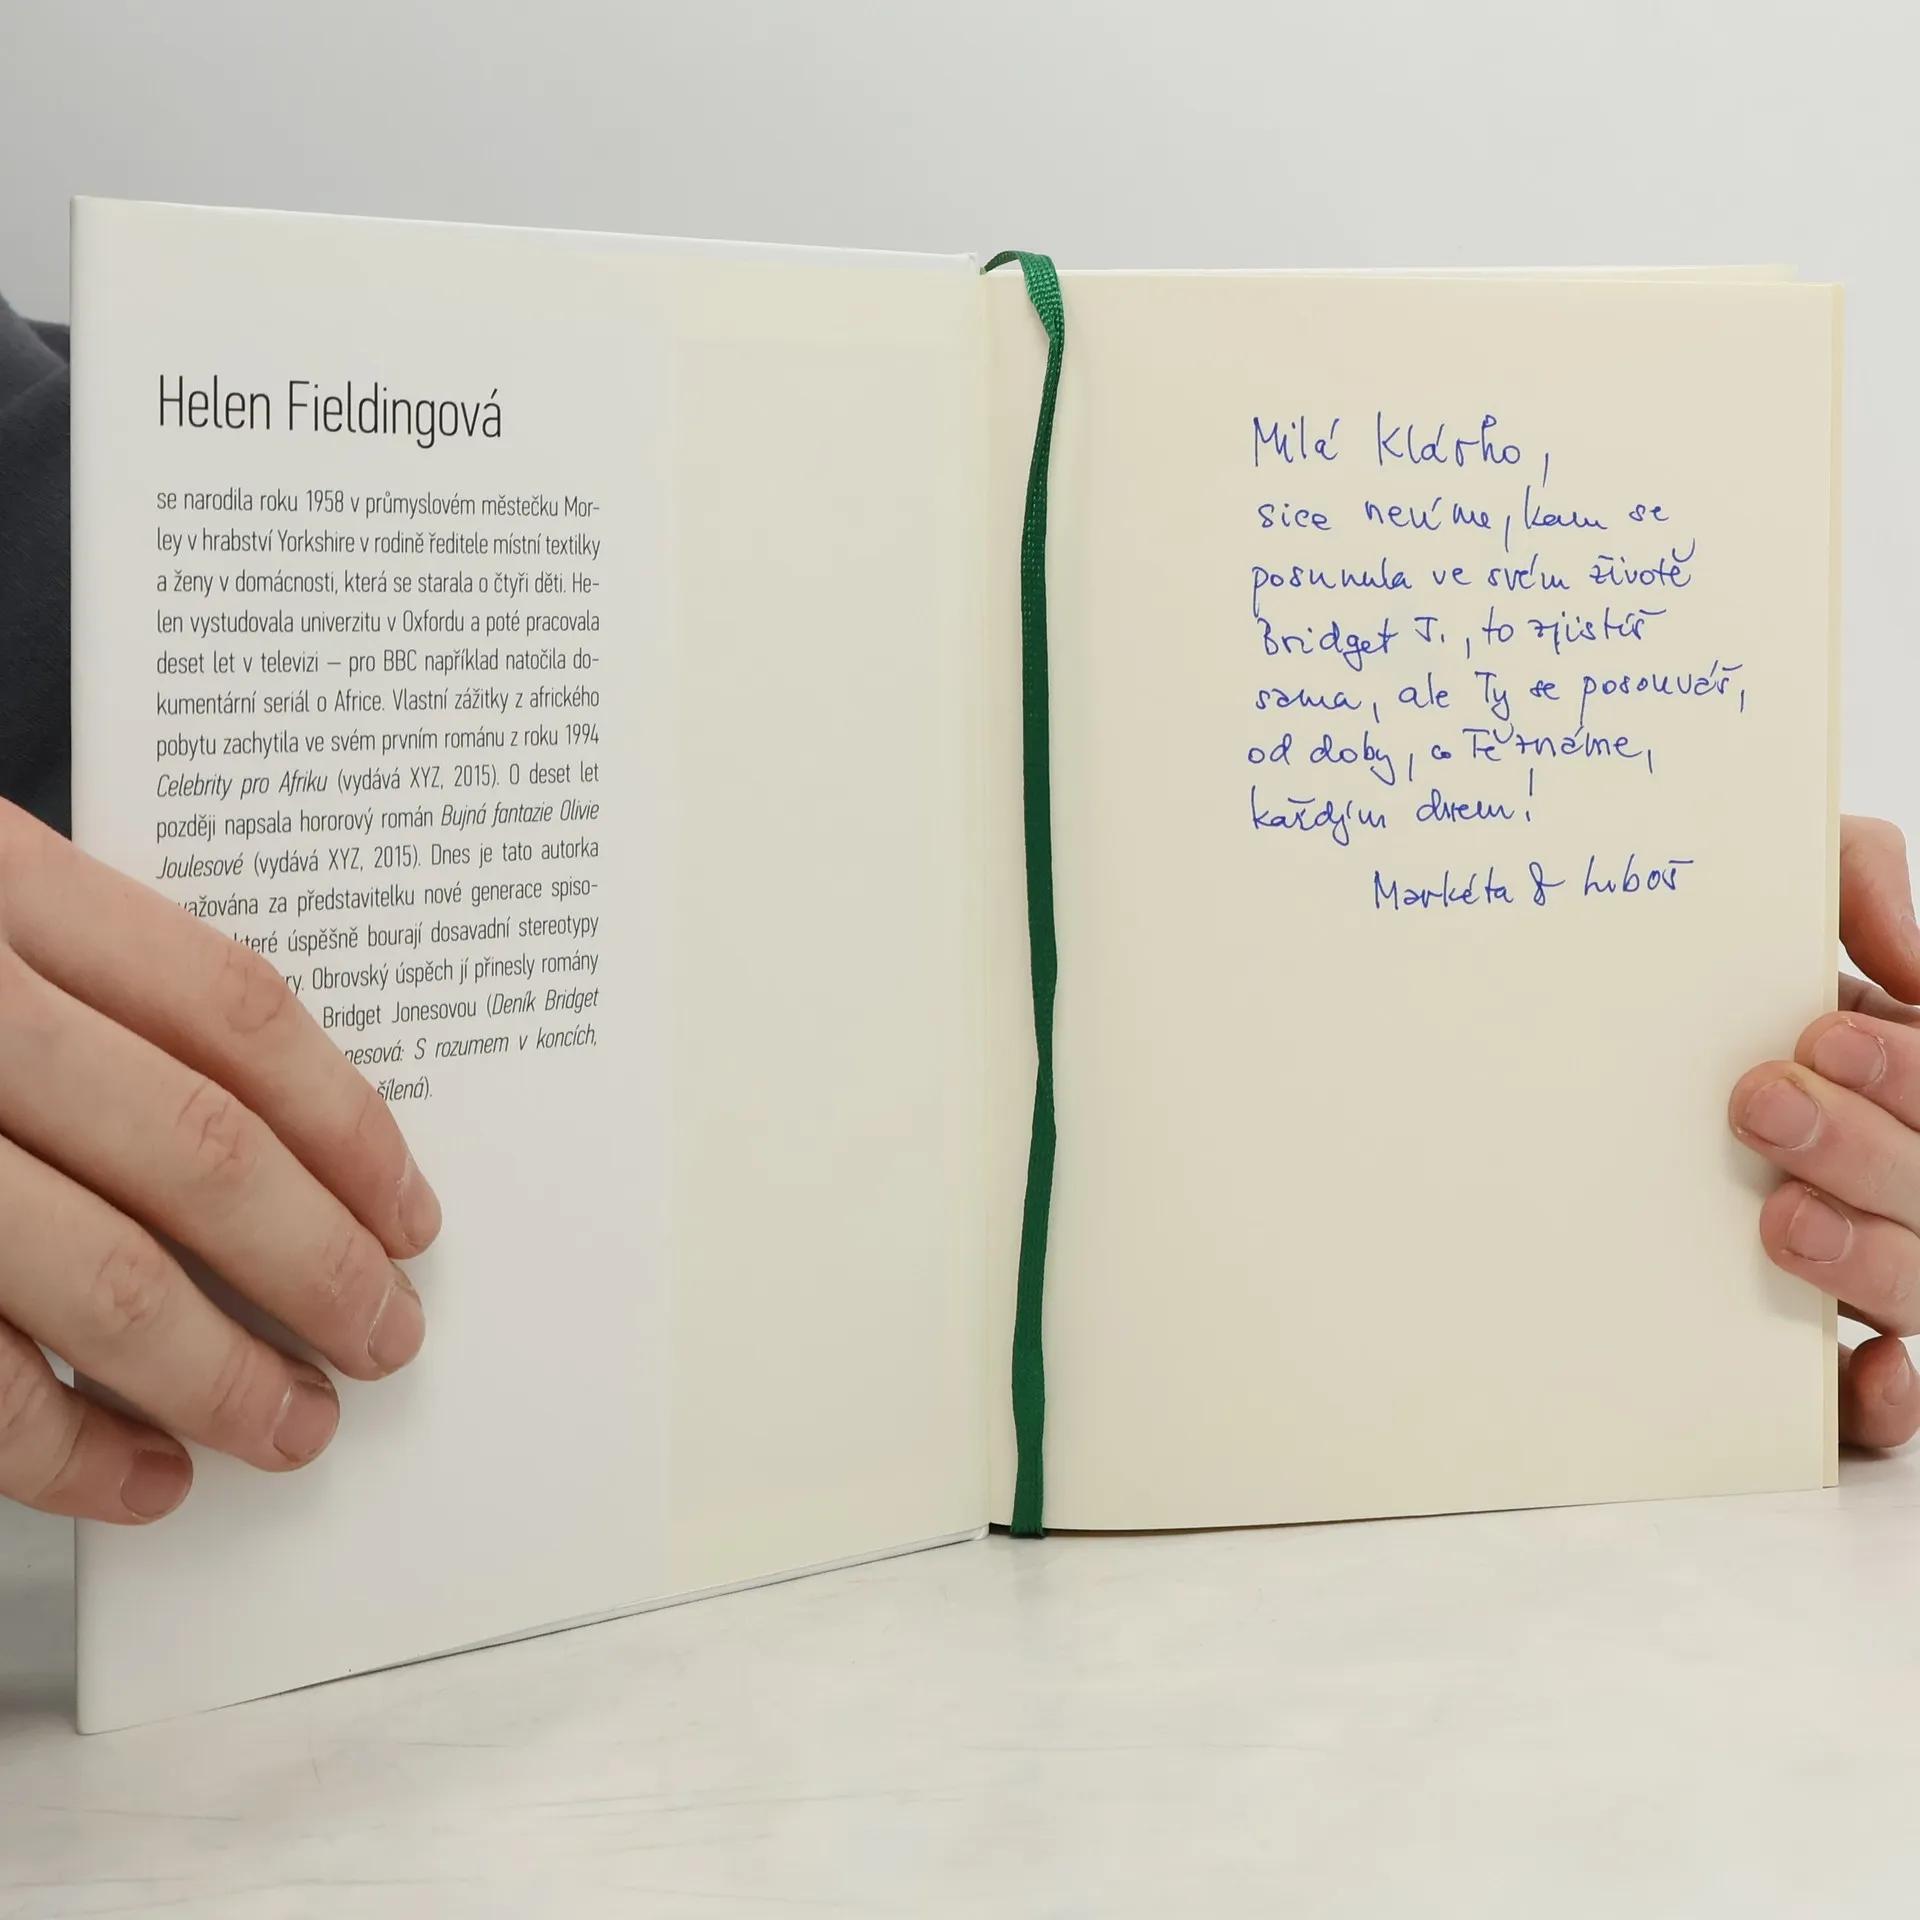 Helen Fieldingová
se narodila roku 1958 v průmyslovém městečku Mor-
ley v hrabství Yorkshire v rodině ředitele místní textilky
a ženy v domácnosti, která se starala o čtyři děti. He-
len vystudovala univerzitu v Oxfordu a poté pracovala
deset let v televizi – pro BBC například natočila do-
kumentární seriál o Africe. Vlastní zážitky z afrického
pobytu zachytila ve svém prvním románu z roku 1994
Celebrity pro Afriku (vydává XYZ, 2015). O deset let
později napsala hororový román Bujná fantazie Olivie
Joulesové (vydává XYZ, 2015). Dnes je tato autorka
za představitelku nové generace spiso-
úspěšně bourají dosavadní stereotypy
Obrovský úspěch jí přinesly romány
Bridget Jonesovou (Deník Bridget
S rozumem v koncích,
šílená).
Milá Klárko,
sice nevíme, kam se
posunula ve svém životě
Bridget J., to zjistíš
sama, ale Ty se posouváš,
od doby, co Tě známe,
každým dnem!
Markéta & Luboš